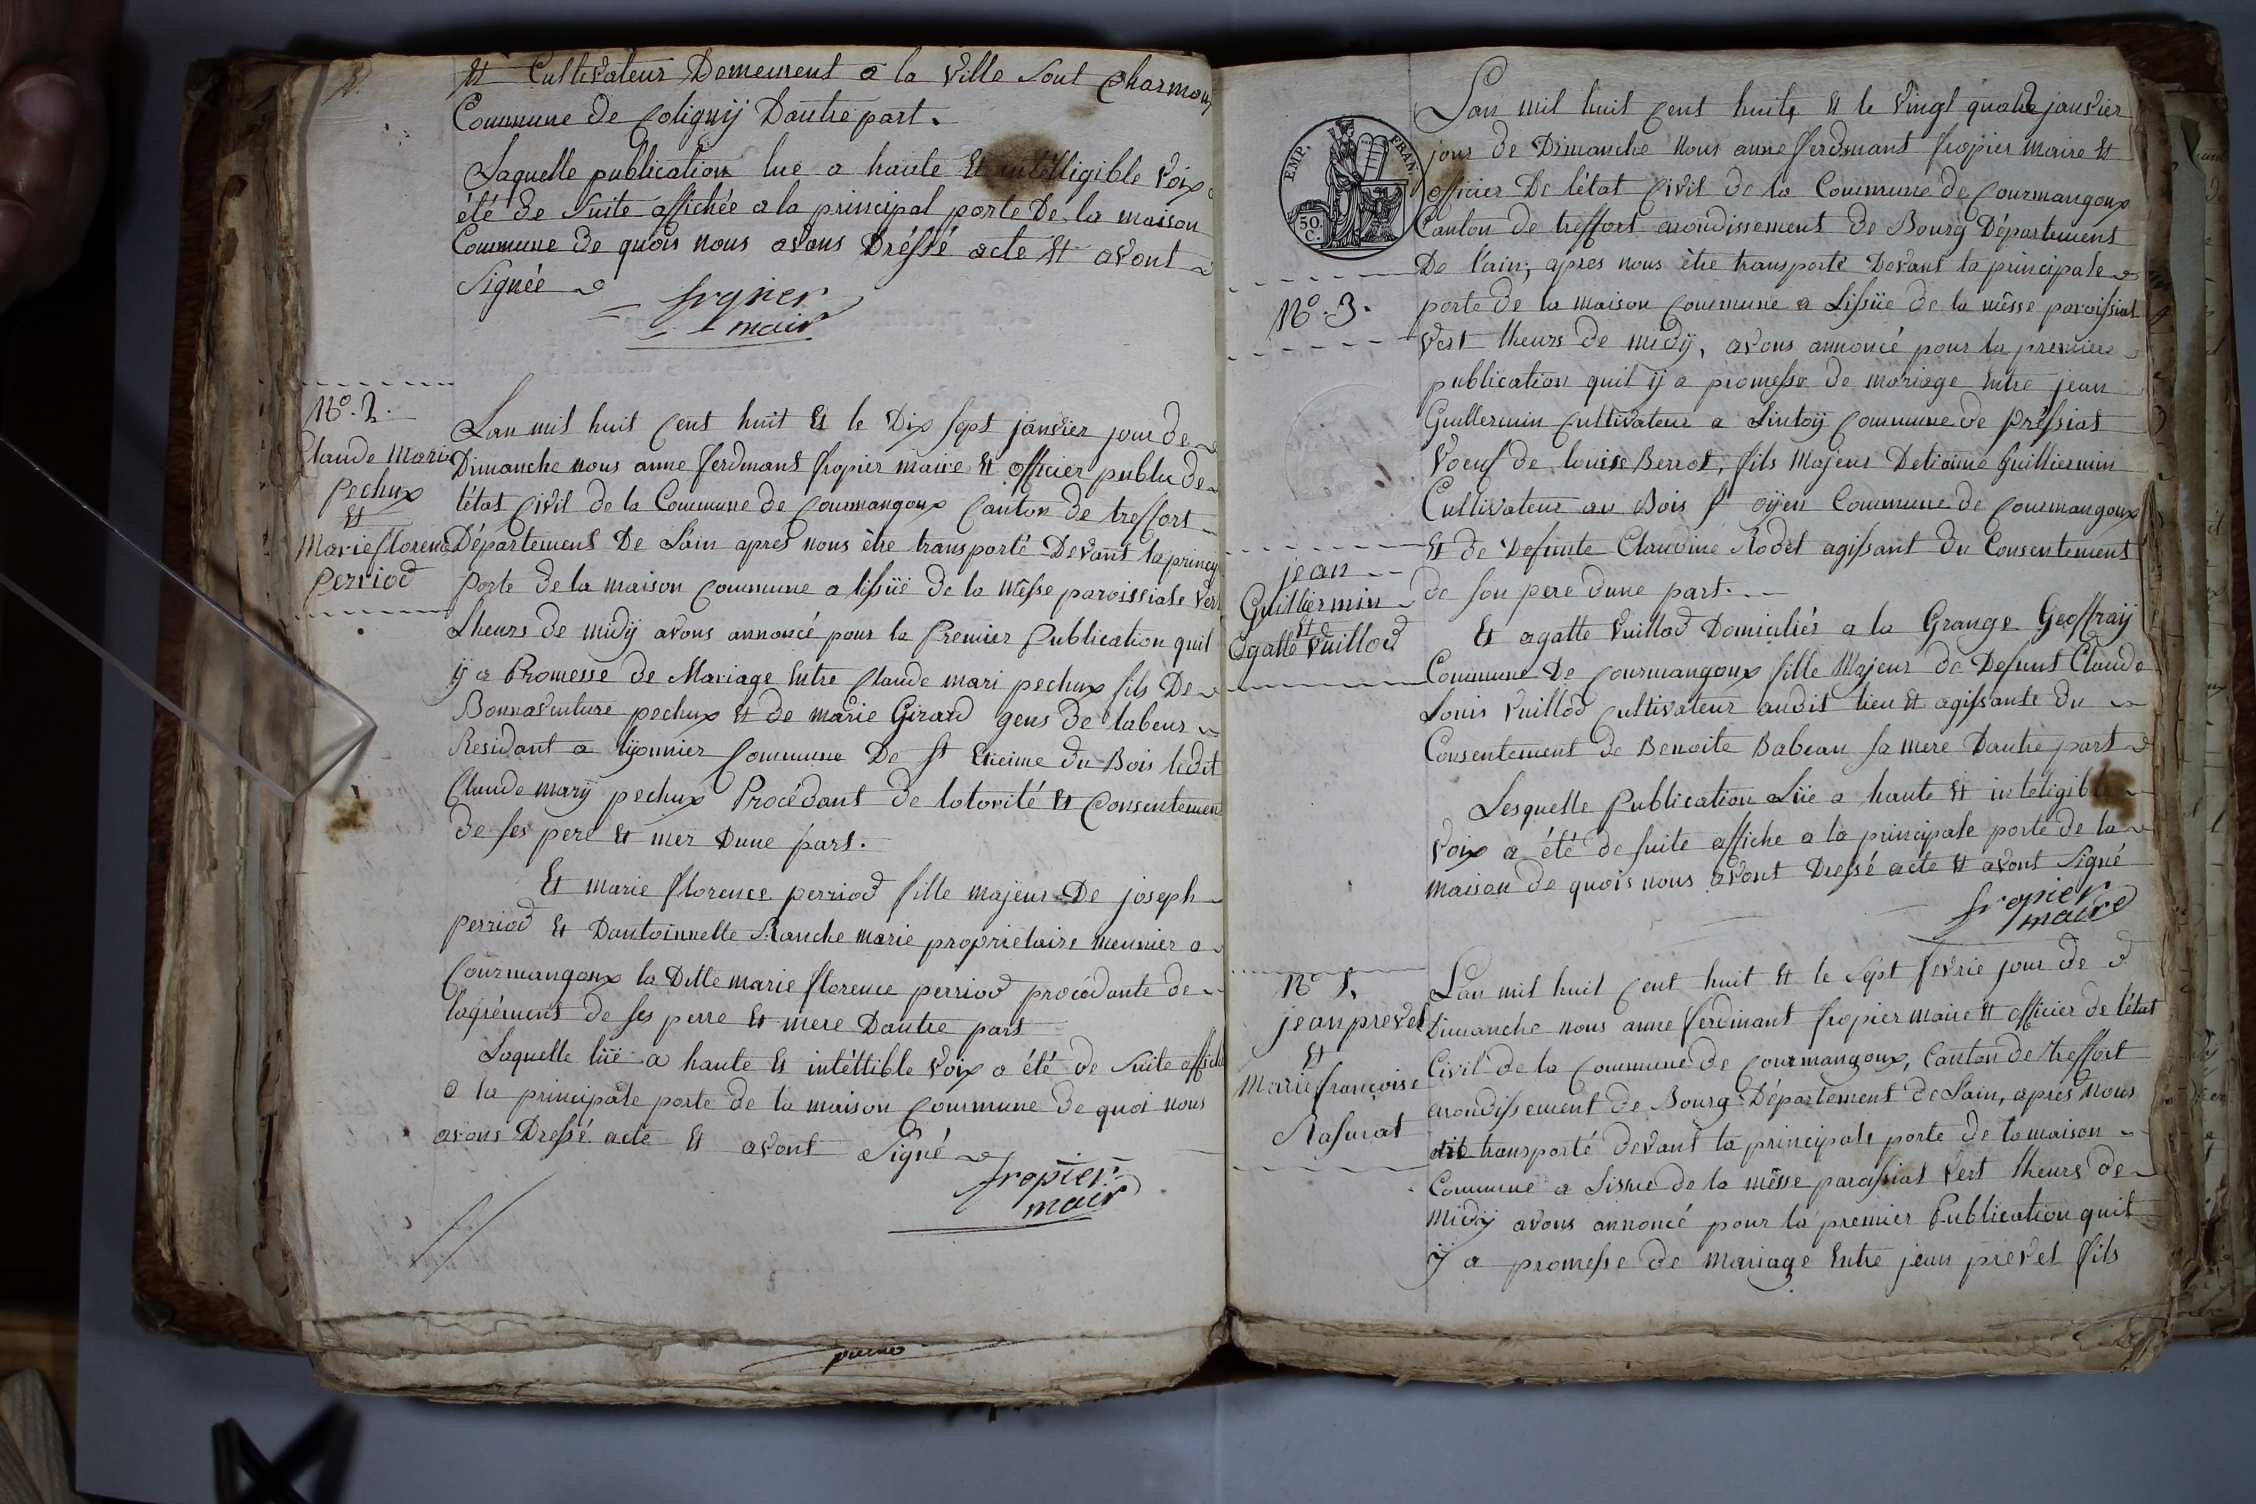 Et Cultivateur Demeurent a la ville sout Charmoux
Commune de Coligny Dautre part.
Laquelle publication lue a haute Et intélligible voix a
été de Suite affichée a la principal porte De la maison
Commune de quois nous avons Dréssé acte Et avont
Signée
fropier
mair
N.º 2.
Claude Marie
pechux
Et
Marie florence
perriod
Lan mil huit Cent huit Et le Dix sept janvier jour de
Dimanche nous anne ferdinant fropier maire Et officier public de
létat Civil de la Commune de Courmangoux Canton de treffort
Département De Lain apres nous être transporté Devant la princip
Porte de la maison Commune a lissüe de la Messe paroissiale vert
Lheurs de midÿ avons annoncé pour la Premier Publication quil
ÿ a Promesse de Mariage Entre Claude mari pechux fils De
Bonnaventure pechux Et de marie Girard gens de labeur
Residant a lÿonnier Commune De St Etieine du Bois ledit
Claude marÿ pechux Procédant de lotorité Et Consentement
de ses pere Et mer Dune part.
Et marie florence perriod fille majeur De joseph
perriod Et Dantoinnette Ranche marie propriétaire meunier a
Courmangoux la Ditte marie florence perriod procédante de
lagrément de ses perre Et mere Dautre part
Laquelle lüe a haute Et intéltible voix a été de Suite affiché
a la principale porte de la maison Commune de quoi nous
avons Dressé acte Et avont Signé
fropier
mair
EMP. FRAN.
50. C.
Lan mil huit Cent huit, Et le vingt quatre janvier
jour de Dimanche Nous anne ferdinant fropier Maire Et
officier De létat Civil de la Commune de Courmangoux
Canton de treffort arondissement de Bourg Département
De l'ain, apres nous être transporté Devant la principale
N.º 3.
porte de la maison Commune a Lissüe de la mêsse paroissial
vert lheurs de midÿ, avons annoncé pour la premiere
publication quil ÿ a promesse de mariage Entre jean
Guillermin Cultivateur a Lintoÿ Commune de Préssiat
voeuf de louise Berrot, fils Majeur Detienne Guilliermin
Cultivateur au Bois St oÿen Commune de Courmangoux
Et de Defunte Claudine Rodet agissant du Consentement
de son pere dune part.
jean
Guilliermin
Et
agatte vuillod
Et agatte vuillod Domiciliés a la Grange Geoffraÿ
Commune De Courmangoux fille Majeur de Defunt Claude
Louis vuillod Cultivateur audit lieu Et agissante du
Consentement de Benoite Babeau sa mere Dautre part
Lesquelle Publication Lüe a haute Et inteligible
voix a été de suite affiche a la principale porte de la
maison de quois nous avont Dressé acté Et avont Signé
fropier
maire
jean prevet
Et
Marie françoise
Rasurat
Lan mil huit Cent huit Et le Sept fevrie jour de
Dimanche nous anne ferdinant fropier maire Et officier de létat
Civil de la Commune de Courmangoux, Canton de treffort
arondissement de Bourg Département de Lain, apres nous
transporté devant la principale porte de la maison
Commune a Lissue de la mêsse parassiat vert lheurs de
Midÿ avons annoncé pour la premier Publication quil
ÿ a promesse de Mariage Entre jean prevet fils